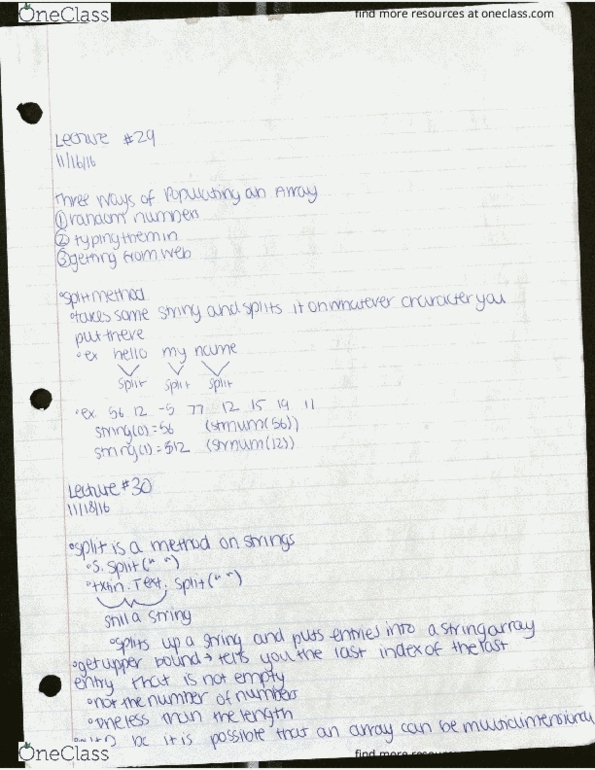 OneClass
find more resources at oneclass.com
Lecture #29
11/16/16
Three ways of Populating an Array
① random numbers
② typing them in
③ getting from web
°split method
°takes some string and splits it on whatever character you
put there
°ex hello my name
split split split
°ex. 56 12 -5 77 12 15 19 11
string(0)=56 (strnum(56))
string(1)=12 (strnum(12))
Lecture #30
11/18/16
°split is a method on strings
°S.split(" ")
°txtin.Text.split(" ")
still a string
°splits up a string and puts entries into a string array
°get upper bound → tells you the last index of the last
entry that is not empty
°not the number of numbers
°one less than the length
it is possible that an array can be multidimensional
OneClass
find more